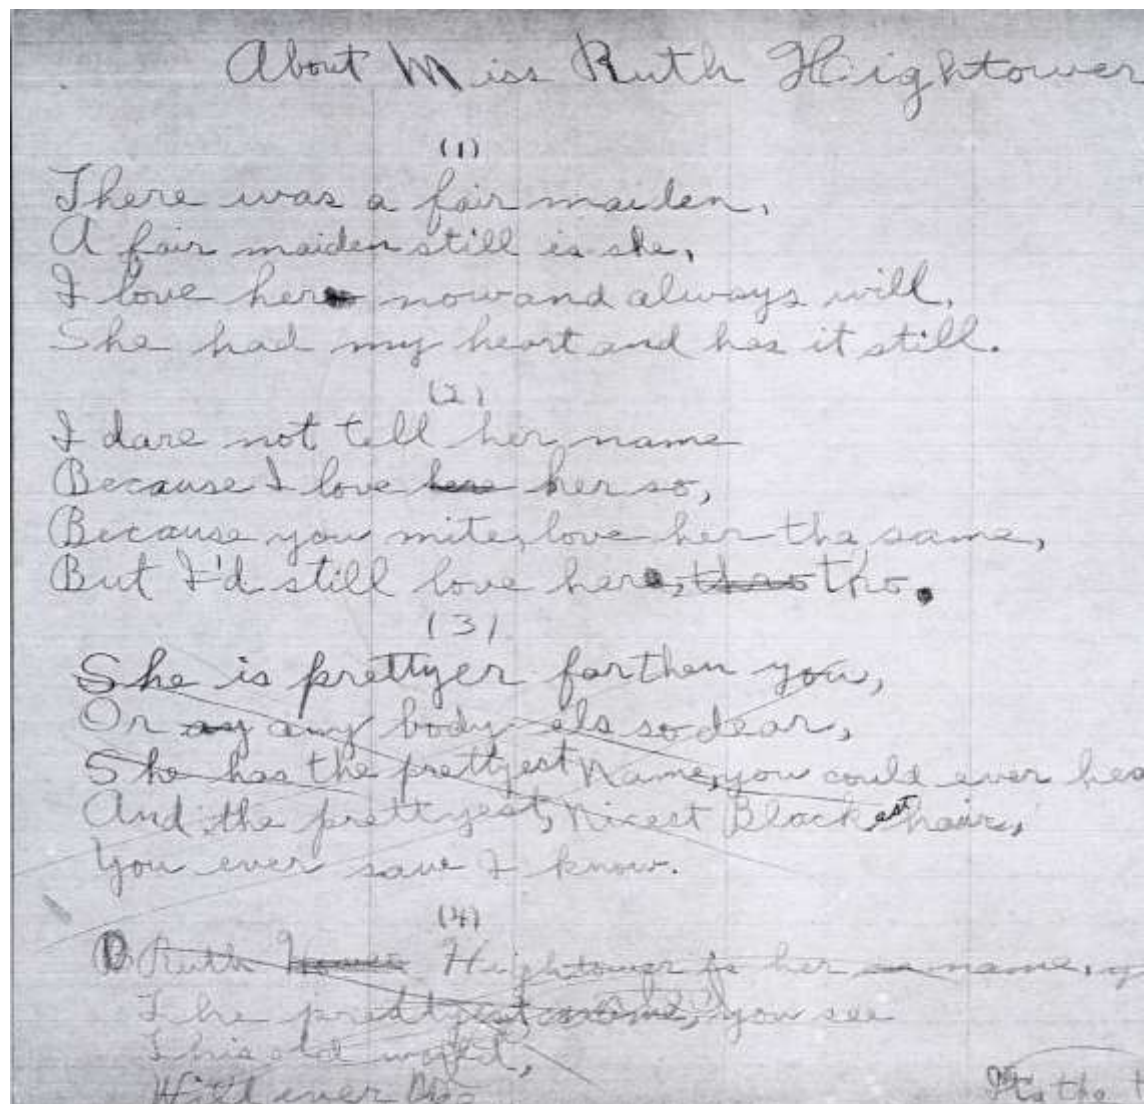 About Miss Ruth Hightower
(1)
There was a fair maiden,
A fair maiden still is she,
I love her now and always will,
She had my heart and has it still.
(2)
I dare not tell her name
Because I love here her so,
Because you mite, love her the same,
But I'd still love her, tho.
(3)
She is prettyer far then you,
Or ay any body els so dear,
She has the prettyest Name, you could ever hea
And the prettyest, Nicest Blackest hair,
You ever save I know.
(4)
Ruth Hightower is her name, y
The prettyest name, you see
This old world,
Will ever be
It's the